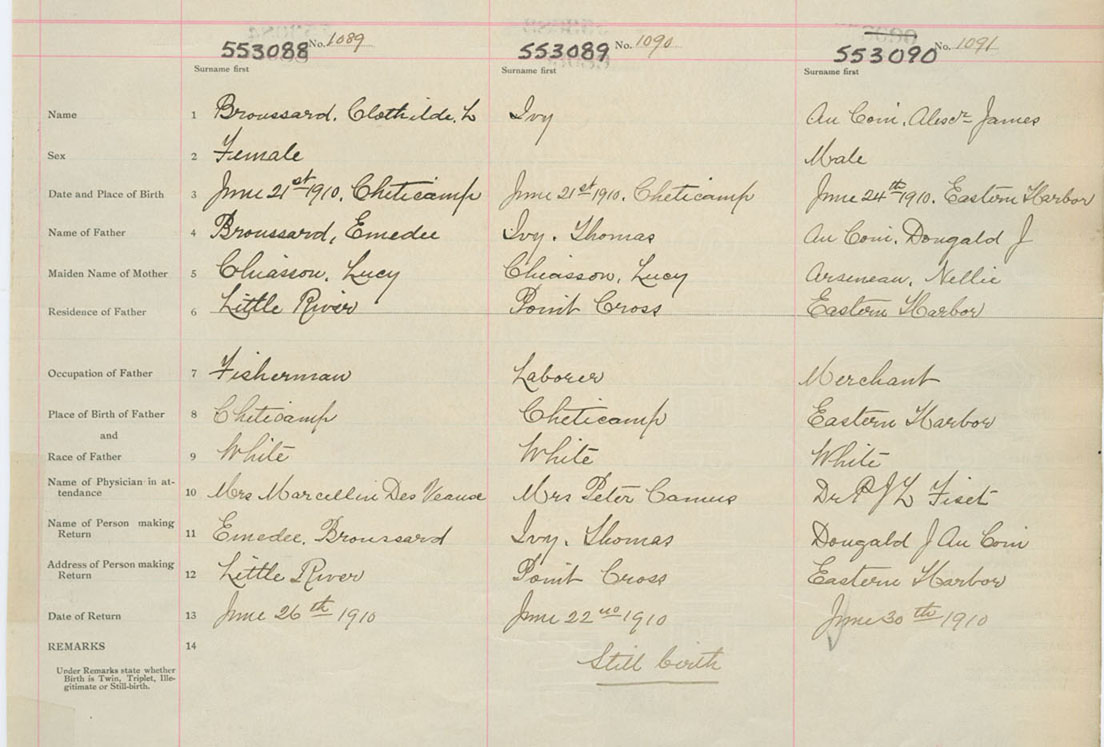 553088 No. 1089 553089 No. 1090 553090 No. 1091
Surname first Surname first Surname first
Name 1 Broussard, Clothilde, L Ivy Au Coin, Alexr James
Sex 2 Female Male
Date and Place of Birth 3 June 21st 1910, Cheticamp June 21st 1910, Cheticamp June 24th 1910, Eastern Harbor
Name of Father 4 Broussard, Emedee Ivy, Thomas Au Coin, Dougald J
Maiden Name of Mother 5 Chiasson, Lucy Chiasson, Lucy Arseneau, Nellie
Residence of Father 6 Little River Point Cross Eastern Harbor
Occupation of Father 7 Fisherman Laborer Merchant
Place of Birth of Father 8 Cheticamp Cheticamp Eastern Harbor
and
Race of Father 9 White White White
Name of Physician in at-
tendance 10 Mrs Marcellin Des Veause Mrs Peter Camus Dr P J L Fiset
Name of Person making
Return 11 Emedee, Broussard Ivy, Thomas Dougald J Au Coin
Address of Person making
Return 12 Little River Point Cross Eastern Harbor
Date of Return 13 June 26th 1910 June 22nd 1910 June 30th 1910
REMARKS 14
Still birth
Under Remarks state whether
Birth is Twin, Triplet, Ille-
gitimate or Still-birth.